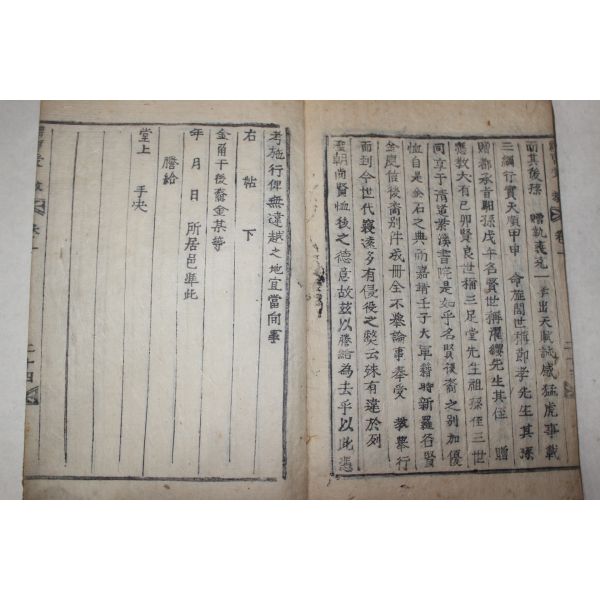 而其後孫 贈執義克一 孝出天賦誠感猛虎事載
三綱行實天順甲申 命旌閭世稱節孝先生其孫
贈都承旨馹孫戊午名賢世稱濯纓先生其侄 贈
應敎大有己卯賢良世稱三足堂先生祖孫侄三世
同享于淸道紫溪書院是如乎名賢後裔之別加優
恤自是金石之典而嘉靖壬子大軍籍時新羅名賢
金庾信後裔別件成冊全不擧論事奉受 敎擧行
而到今世代寢遠多有侵役之弊云殊有違於列
聖朝尙賢恤後之德意故玆以謄給爲去乎以此憑
考施行俾無違越之地宜當向事
右帖 下
金角干後裔金某等
年 月 日 所居邑準此
謄給
堂上 手决
受敎
二十四